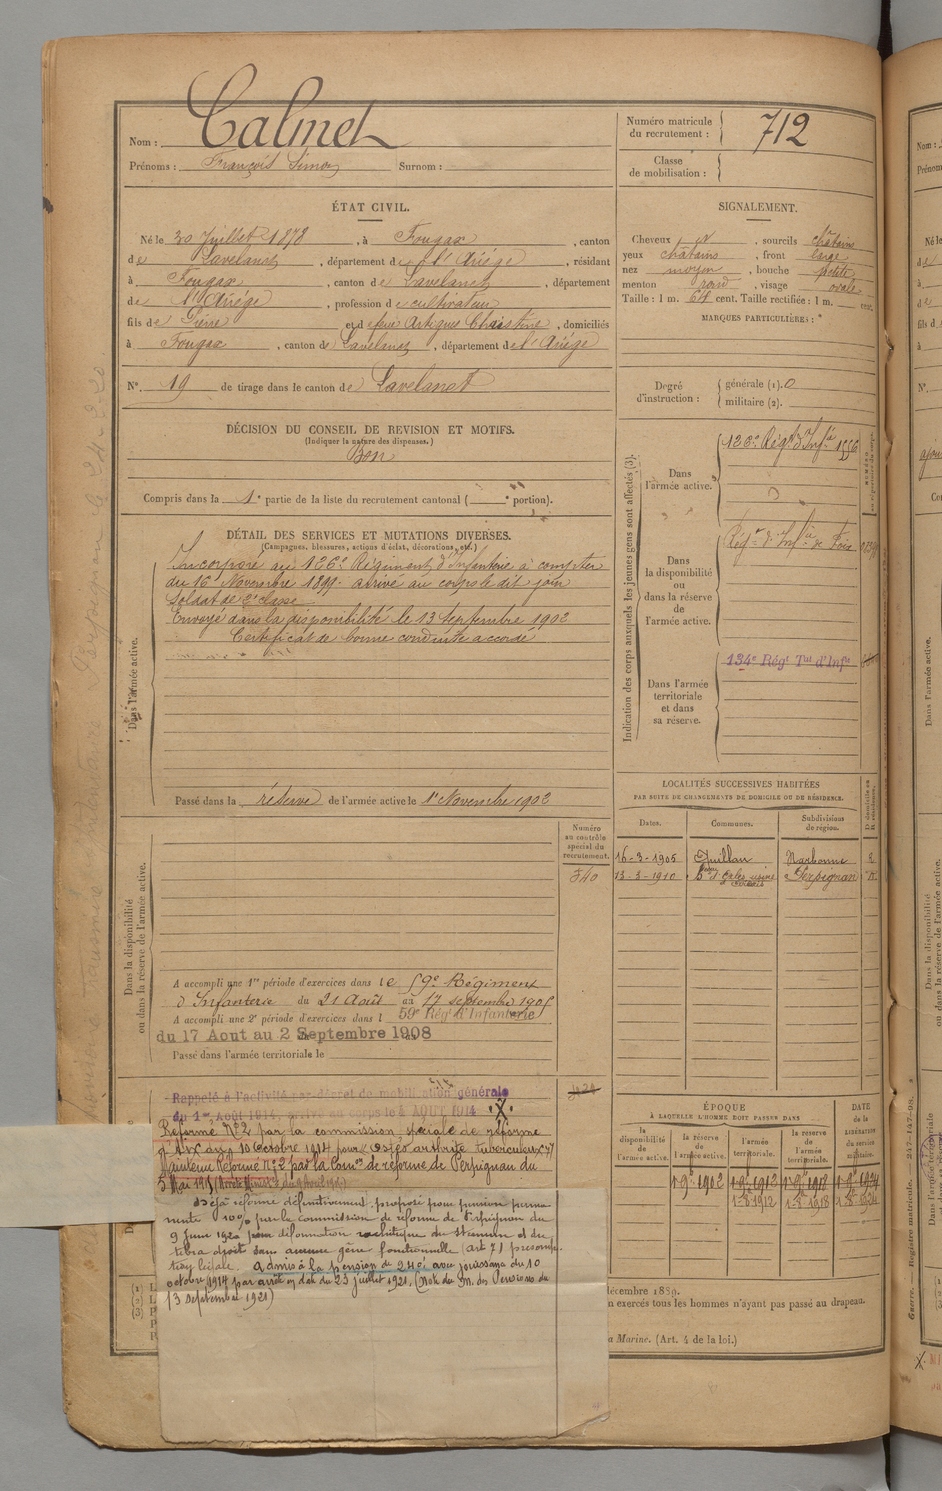 Nom : Calmet
Prénoms : François Simon Surnom :
Numéro matricule du recrutement : 712
Classe de mobilisation :
ÉTAT CIVIL.
Né le 30 Juillet 1878, à Fougax, canton
de Lavelanet, département de l'Ariége, résidant
à Fougax, canton de Lavelanet, département
de l'Ariége, profession de cultivateur
fils de Pierre et de feue Artigues Christine, domiciliés
à Fougax, canton de Lavelanet, département de l'Ariége
N° 19 de tirage dans le canton de Lavelanet
SIGNALEMENT.
Cheveux et, sourcils châtains
yeux châtains, front large
nez moyen, bouche petite
menton rond, visage ovale
Taille : 1 m. 64 cent. Taille rectifiée : 1 m. cent.
MARQUES PARTICULIÈRES :
Degré d'instruction : générale (1). 0
militaire (2).
DÉCISION DU CONSEIL DE REVISION ET MOTIFS.
(Indiquer la nature des dispenses.)
Bon
Compris dans la 1e partie de la liste du recrutement cantonal ( e portion).
DÉTAIL DES SERVICES ET MUTATIONS DIVERSES.
(Campagnes, blessures, actions d'éclat, décorations, etc.)
Dans l'armée active.
Incorporé au 126e Régiment d'Infanterie à compter
du 16 Novembre 1899. arrivé au corps le dit jour
Soldat de 2e classe
Envoyé dans la disponibilité le 13 Septembre 1902
Certificat de bonne conduite accordé
Passé dans la réserve de l'armée active le 1er Novembre 1902
Indication des corps auxquels les jeunes gens sont affectés (3).
Dans l'armée active.
126e Régt d'Infie
Dans la disponibilité ou dans la réserve de l'armée active.
Régt d'Infie de Foix
Dans l'armée territoriale et dans sa réserve.
134e Régt Tal d'Infie
LOCALITÉS SUCCESSIVES HABITÉES
PAR SUITE DE CHANGEMENTS DE DOMICILE OU DE RÉSIDENCE.
Dates. Communes. Subdivisions de région. D. domicile ou R. résidence.
16-3-1905 Quillan Narbonne R
13-3-1910 usine Perpignan
Dans la disponibilité ou dans la réserve de l'armée active.
Numéro au contrôle spécial du recrutement.
340
A accompli une 1re période d'exercices dans le 59e Régiment
d'Infanterie du 21 Août au 17 septembre 1905
A accompli une 2e période d'exercices dans l 59e Régt d'Infanterie
du 17 Aout au 2 Septembre 1908
Passé dans l'armée territoriale le
Rappelé à l'activité par décret de mobilisation générale
du 1er Août 1914, arrivé au corps le 4 AOUT 1914
Réformé N°2 par la commission spéciale de réforme
d'Aix du 10 Octobre 1914 pour Ostéo arthrite tuberculeuse
Maintenu Réformé N°2 par la Comon de réforme de Perpignan du
5 Mai 1915
Déjà réformé définitivement proposé pour pension perma
nente 10% par la commission de réforme de Perpignan du
9 Juin 1920 pour déformation rachitique du sternum et du
tibia droit sans aucune gêne fonctionnelle (art 7) présomp.
tion légale. Admis à la pension de 240f avec jouissance du 10
octobre 1914 par arrêté en date du 23 juillet 1921. (Not. du M. des Pensions du
13 septembre 1921)
ÉPOQUE
À LAQUELLE L'HOMME DOIT PASSER DANS
la disponibilité de l'armée active. la réserve de l'armée active. l'armée territoriale. la réserve de l'armée territoriale. DATE de la LIBÉRATION du service militaire.
1-9e 1902 1-9e 1912 1-9e 1918 1-9e 1924
1-8-1912 1-8-1918
décembre 1889.
n exercés tous les hommes n'ayant pas passé au drapeau.
a Marine. (Art. 4 de la loi.)